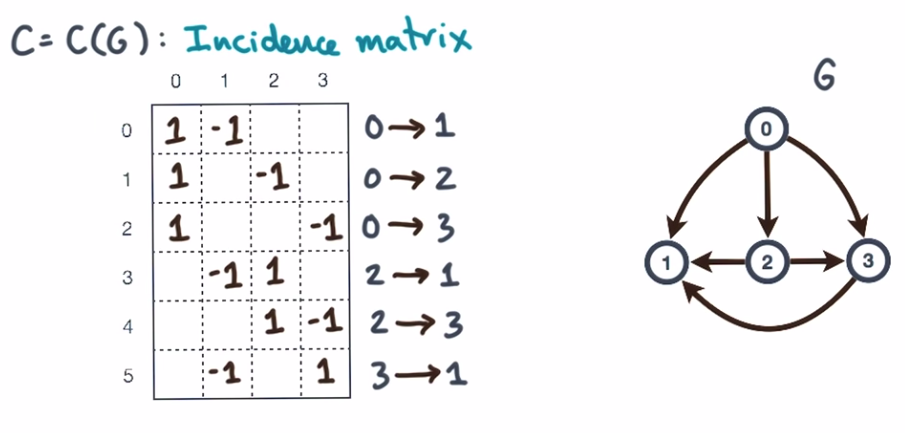 C = C(G) : Incidence matrix
G
0 1 2 3
0 1 -1 0 → 1
1 1 -1 0 → 2
2 1 -1 0 → 3
3 -1 1 2 → 1
4 1 -1 2 → 3
5 -1 1 3 → 1
0
1 2 3